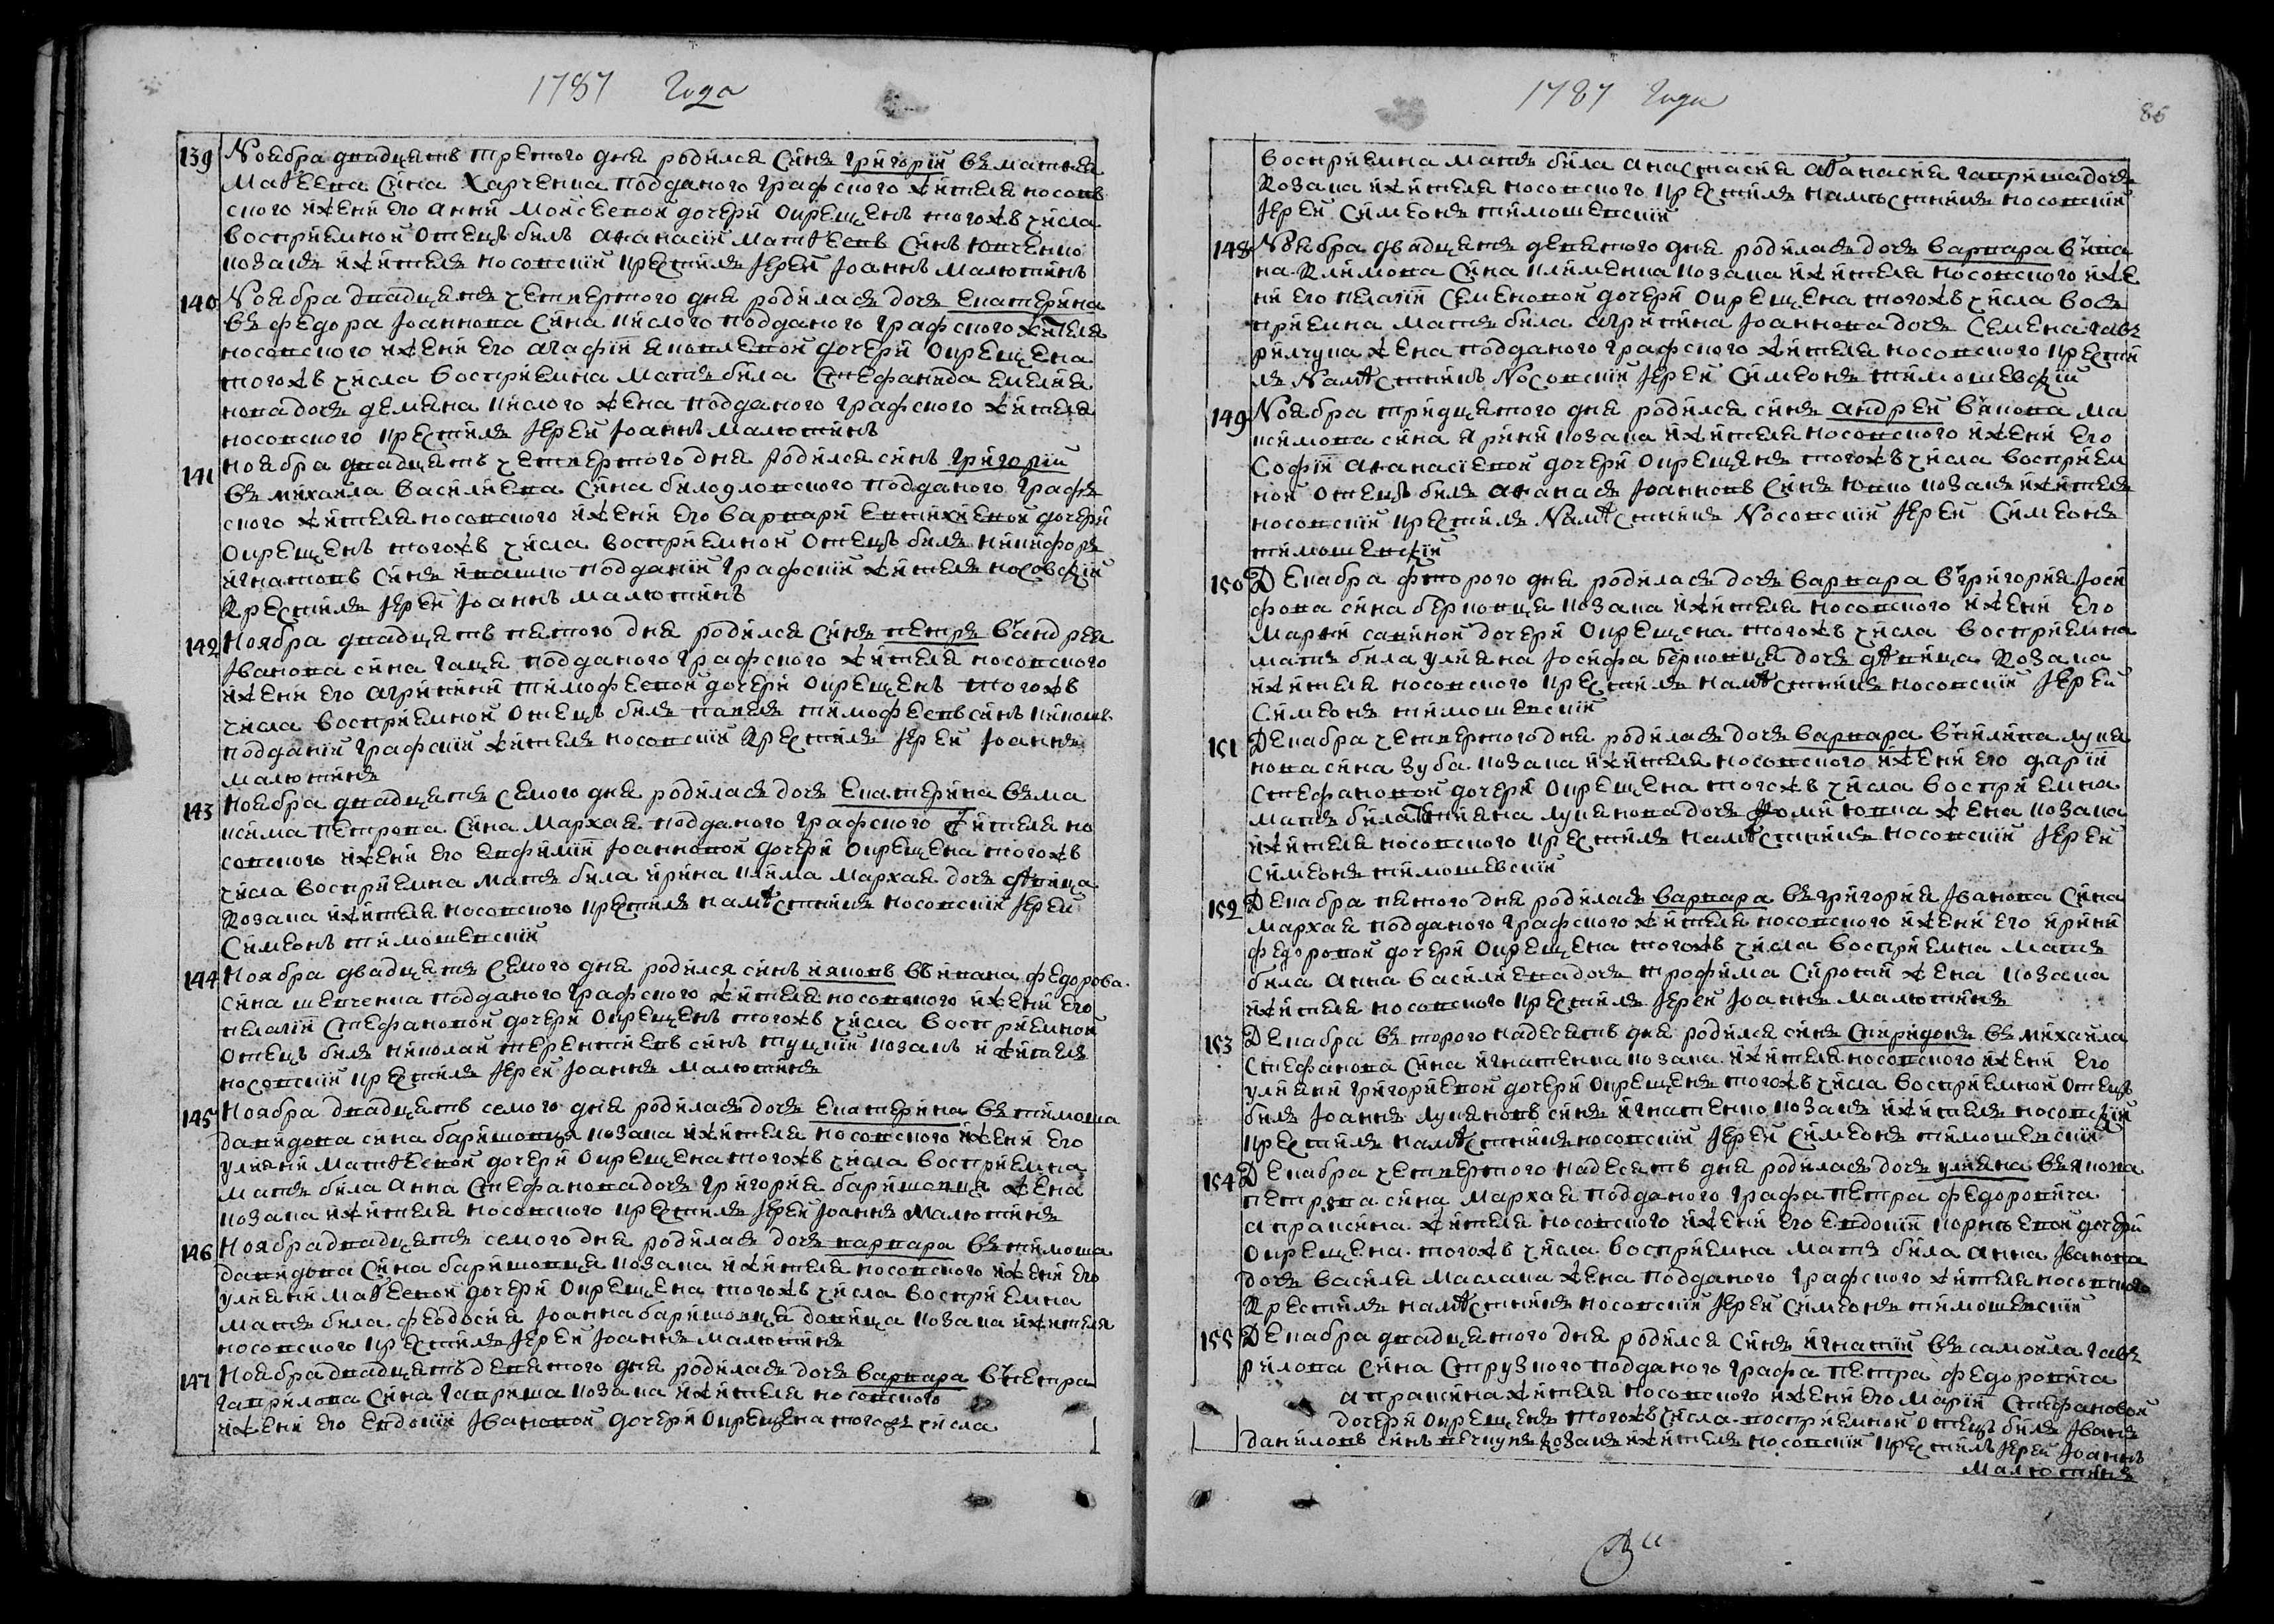 1787 Года
139 Ноября двадцать третого дня родился синъ григорій въ матвея
Матѳеева сина Харченка подданого графского жителя носовъ
ского и жени его анни Моисеевой дочери окрещенъ тогожъ числа
восприемной отецъ билъ аѳанасій Матѳеевъ синъ Юпченко
козакъ и житель носовскій крестилъ іерей Іоаннъ Малютинъ
140 Ноября двадцать четвертого дня родилась дочь екатерина
въ федора Іоаннова сина кислого подданого графского жителя
носовского и жени его агафіи яковлевой дочери окрещена
тогожъ числа восприемна мать била стефанида емелия
нова дочь демяна кислого жена подданого графского жителя
носовского крестилъ іерей Іоаннъ Малютинъ
141 ноября двадцать четвертого дня родился синъ григорій
въ михаила василиева сина билодловского подданого графъ
ского жителя носовского и жени его варвари евтихиевой дочери
окрещенъ тогожъ числа восприемной отецъ билъ никифоръ
игнатовъ синъ ивашко подданій графскій жителъ носовскій
крестилъ іерей Іоаннъ малютинъ
142 Ноября двадцать пятого дня родился синъ петръ въ андрея
Іванова сина гаця подданого графского жителя носовского
и жени его агрипини тимофеевой дочери окрещенъ тогожъ
числа восприемной отецъ билъ павелъ тимофеевъ синъ
подданій графскій житель носовскій крестилъ іерей Іоаннъ
малютинъ
143 Ноября двадцать семого дня родилась дочь екатерина въ ма
ксима Петрова сина Мархая подданого графского жителя но
совского и жени его евфиміи Іоанновой дочери окрещена тогожъ
числа восприемна мать била ирина клима мархая дочь дѣвица
козака и жителя носовского крестилъ намѣстникъ носовскій іерей
Симеонъ тимошевскій
144 Ноября двадцать семого дня родился синъ яковъ въ ивана федорова
сина шевченка подданого графского жителя носовского и жени его
пелагіи стефановой дочери окрещенъ тогожъ числа восприемной
отецъ билъ николай терентиевъ синъ Туцкій козакъ и житель
носовскій крестилъ іерей Іоаннъ малютинъ
145 Ноября двадцать семого дня родилась дочь екатерина въ тимоша
давидова сина баришовця козака и жителя носовского и жени его
улияни матѳеевой дочери окрещена тогожъ числа восприемна
мать била анна стефанова дочь григория баришовця жена
козака и жителя носовского крестилъ іерей Іоаннъ малютинъ
146 Ноября двадцать семого дня родилась дочь варвара въ тимоша
давидова сина баришовця козака и жителя носовского и жени его
улияни маѳеевой дочери окрещена тогожъ числа восприемна
мать била феодосия Іоанна баришовця довица козака и жителя
носовского крестилъ іерей Іоаннъ малютинъ
147 Ноября двадцать девятого дня родилась дочь варвара въ петра
гаврилова сина гавриша козака и жителя носовского
и жени его евдокіи Івановой дочери окрещена тогожъ числа
1787 Года
86
восприемна мать била анастасия аѳанасия гавриша дочь
козака и жителя носовского крестилъ намѣстникъ носовскій
іерей Симеонъ тимошевскій
148 Ноября двадцать девятого дня родилась дочь варвара въ ива
на Климова сина клименка козака и жителя носовского и же
ни его пелагіи Семеновой дочери окрещена тогожъ числа вос
приемна мать била агрипина Іоаннова дочь Семена гав
рилчука жена подданого графского жителя носовского крести
лъ Намѣстникъ Носовскій іерей Симеонъ тимошевскій
149 Ноября тридцатого дня родился синъ андрей въ якова ма
ксимова сина ярини козака и жителя носовского и жени его
Софіи аѳанасіевой дочери окрещенъ тогожъ числа восприем
ной отецъ билъ аѳанась Іоанновъ синъ Юпко козакъ и житель
носовскій крестилъ Намѣстникъ Носовскій іерей Симеонъ
тимошевскій
150 Декабра второго дня родилась дочь варвара въ григория Іоси
фова сина берковця козака и жителя носовского и жени его
Марии савиной дочери окрещена тогожъ числа восприемна
мать била улияна Іосифа берковця дочь дѣвица козака
и жителя носовского крестилъ намѣстникъ носовскій іерей
Симеонъ тимошевскій
151 Декабра четвертого дня родилась дочь варвара въ пилипа лукя
нова сина зуба козака и жителя носовского и жени его даріи
Стефановой дочери окрещена тогожъ числа восприемна
мать била Тетияна лукянова дочь жена козака
и жителя носовского крестилъ намѣстникъ носовскій іерей
Симеонъ тимошевскій
152 Декабра пятого дня родилась варвара въ григория Іванова сина
Мархая подданого графского жителя носовского и жени его ирини
федоровой дочери окрещена тогожъ числа восприемна мать
била анна василиева дочь трофима Сироти жена козака
и жителя носовского крестилъ іерей Іоаннъ малютинъ
153 Декабра второго надесять дня родился синъ спиридонъ въ михаила
Стефанова сина игнатенка козака и жителя носовского и жени его
улияни григориевой дочери окрещенъ тогожъ числа восприемной отецъ
билъ Іоаннъ лукяновъ синъ игнатенко козакъ и житель носовскій
крестилъ намѣстникъ носовскій іерей Симеонъ тимошевскій
154 Декабра четвертого надесять дня родилась дочь улияна въ якова
петрова сина мархая подданого графа петра федоровича
апраксина жителя носовского и жени его евдокіи корнѣевой дочери
окрещена тогожъ числа восприемна мать била анна Іванова
дочь василя маслака жена подданого графского жителя носовского
крестилъ намѣстникъ носовскій іерей Симеонъ тимошевскій
155 Декабра двадцатого дня родился синъ игнатій въ самоила гав
рилова сина Струзного подданого графа петра федоровича
апраксина жителя носовского и жени его маріи Стефановой
дочери окрещенъ тогожъ числа восприемной отецъ билъ Іванъ
даниловъ синъ козакъ и житель носовскій крестилъ іерей Іоаннъ
Малютинъ